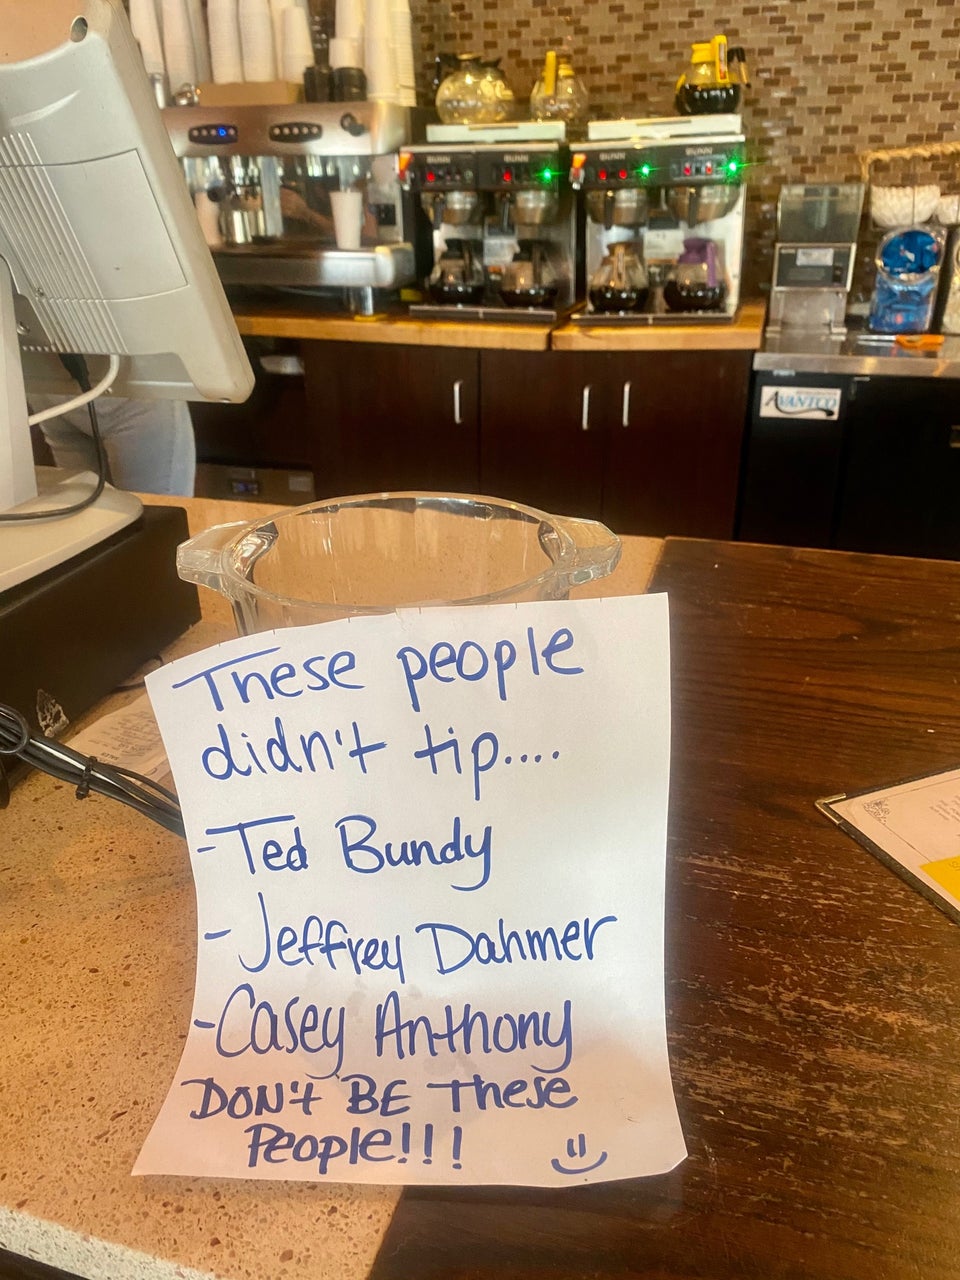 BUNN
BUNN
BUNN
AVANTCO
These people
didn't tip....
-Ted Bundy
-Jeffrey Dahmer
-Casey Anthony
DON't BE These
People!!!